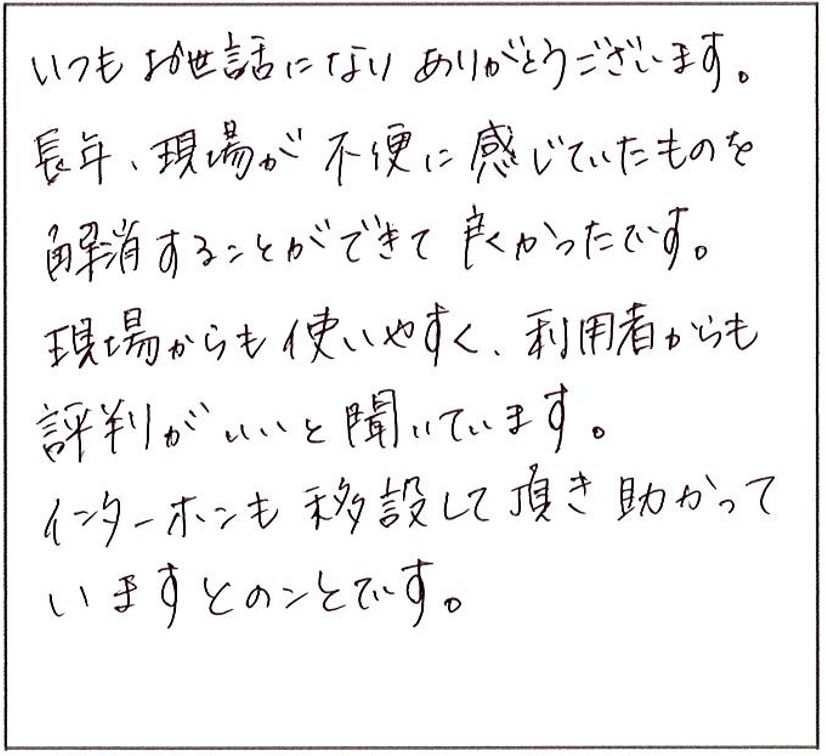 いつもお世話になりありがとうございます。
長年、現場が不便に感じていたものを
解消することができて良かったです。
現場からも使いやすく、利用者からも
評判がいいと聞いています。
インターホンも移設して頂き助かって
いますとのことです。